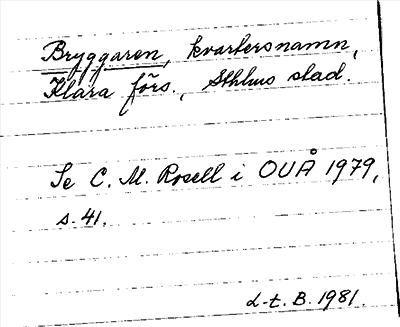 Bryggaren, kvartersnamn,
Klara förs., Sthlms stad.
Se C. M. Rosell i OUÅ 1979,
s. 41.
L-t. B. 1981.